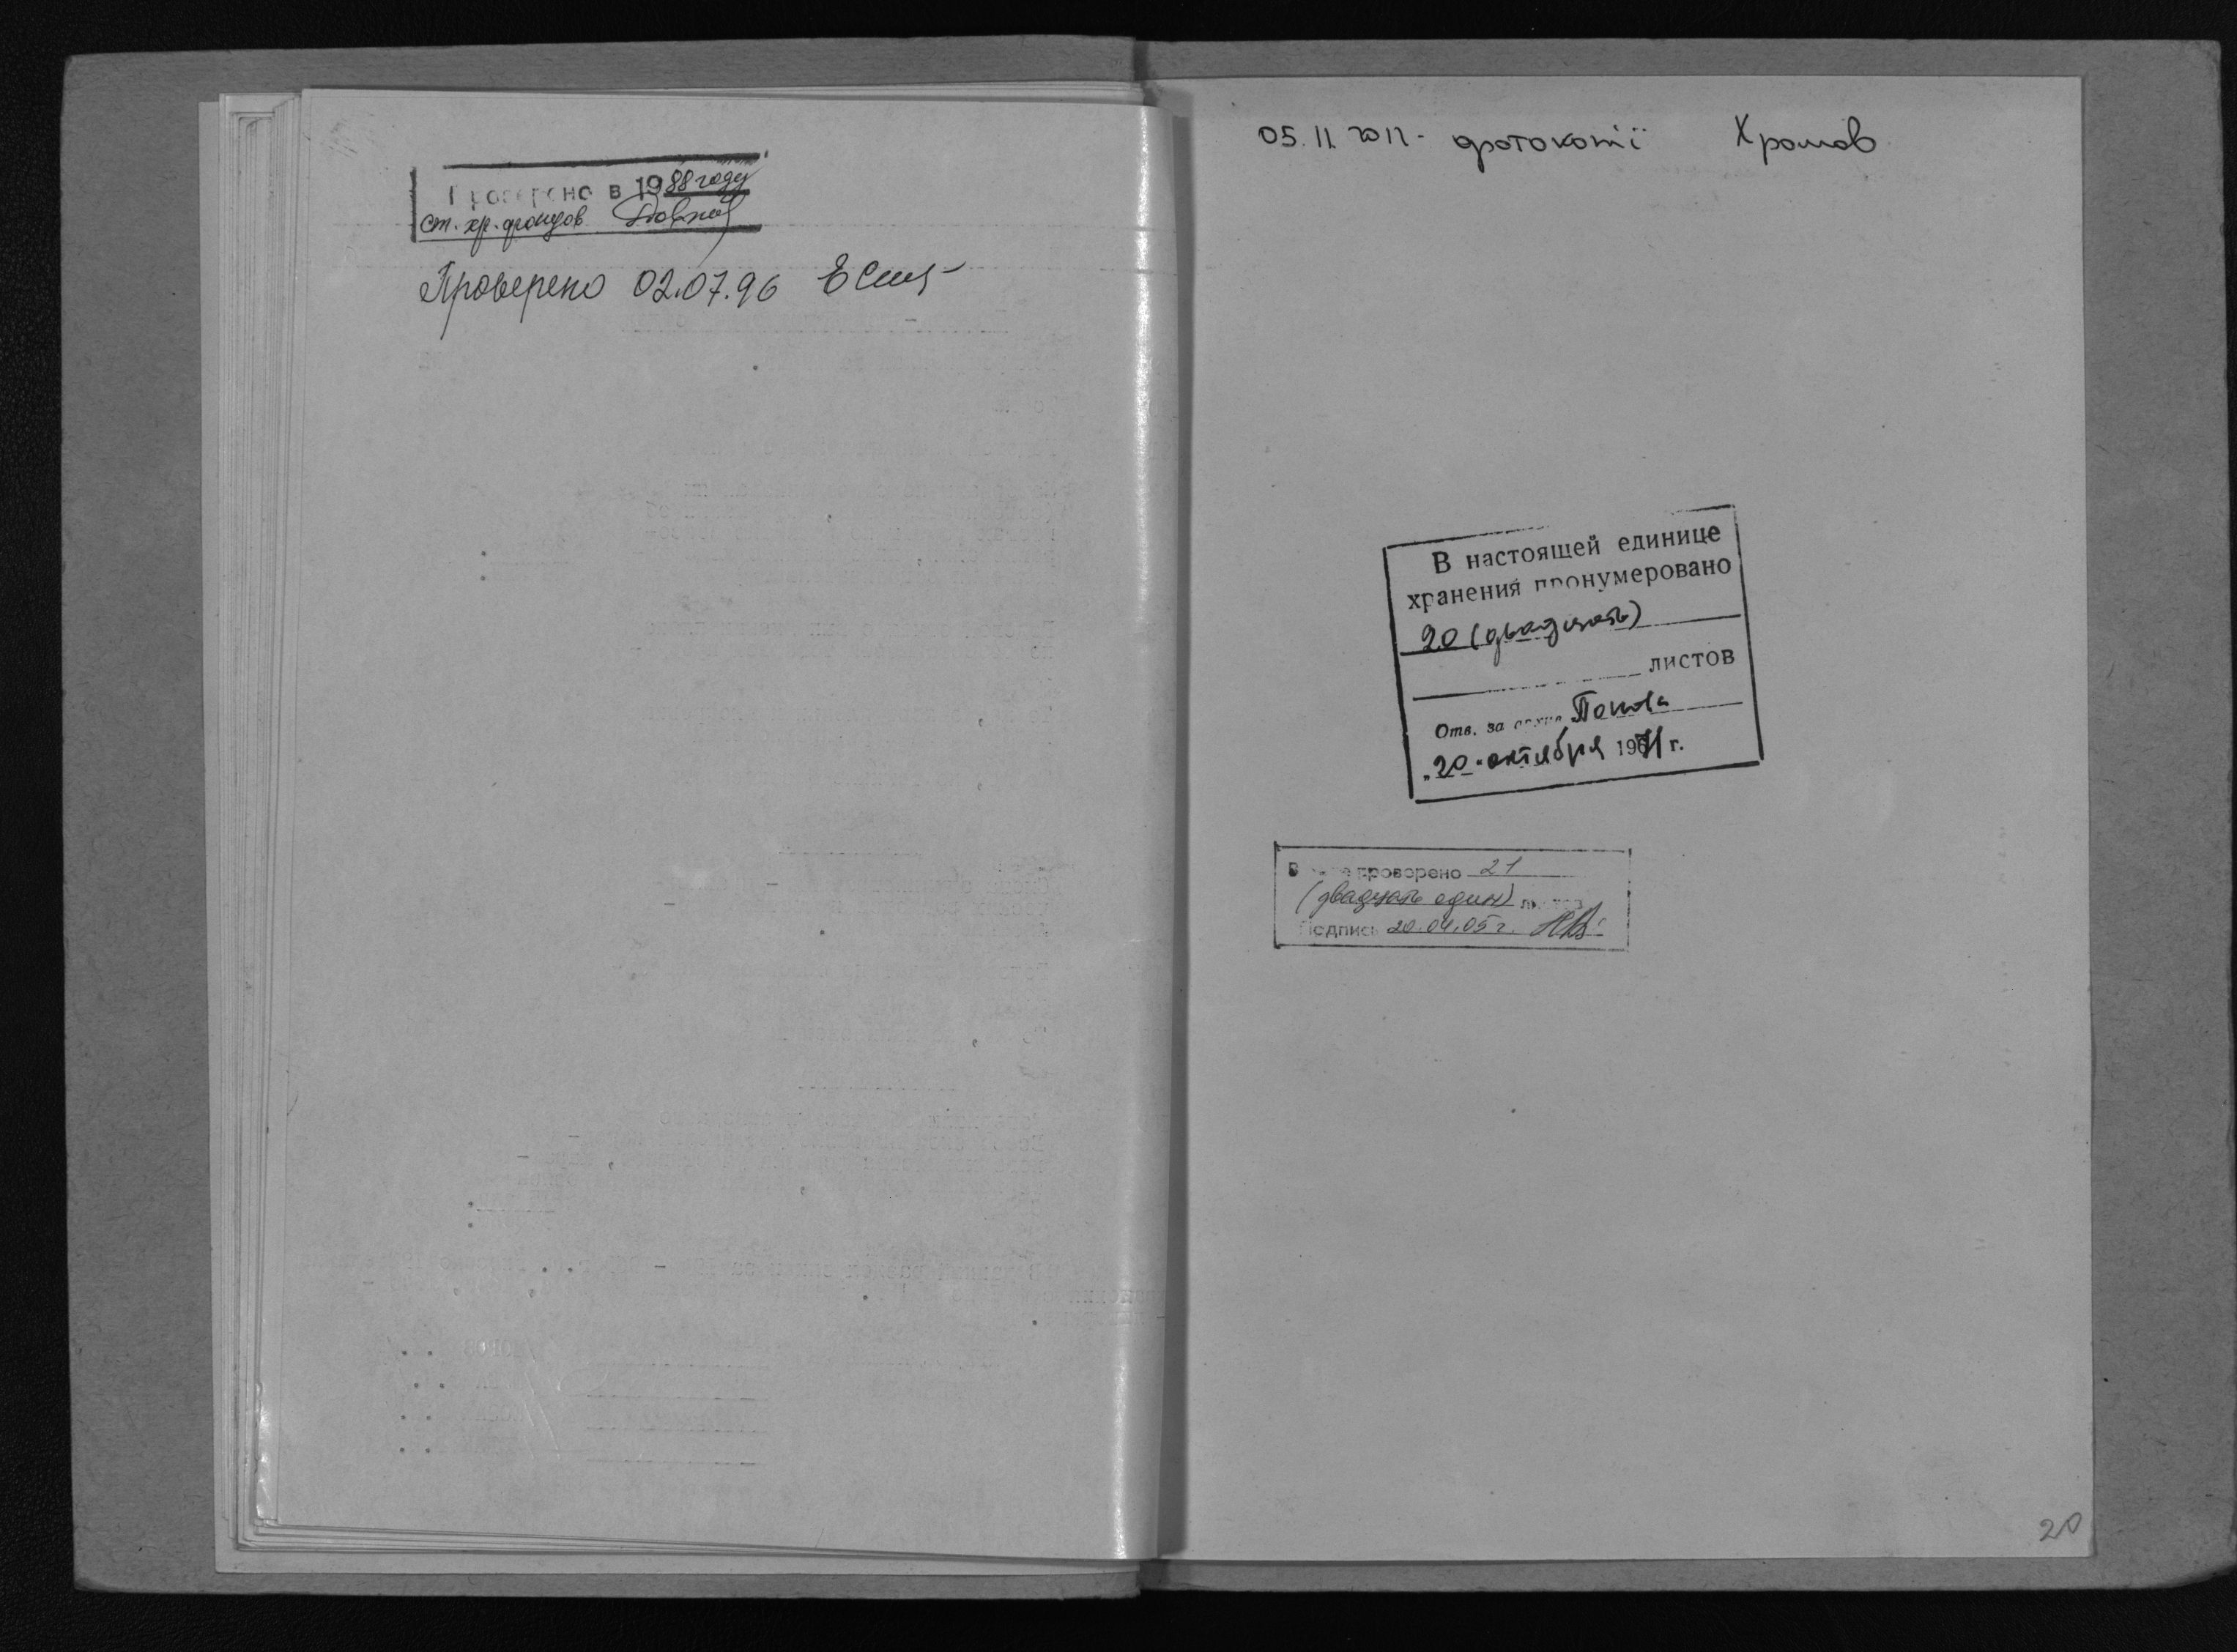 Проверено в 1988 году
ст. хр. фондов
Проверено 02.07.96
05.11.2012 - фотокопії Хромов
В настоящей единице
хранения пронумеровано
20 (двадцать)
листов
Отв. за архив Попова
"20" октября 1971 г.
В деле проверено 21
(двадцать один) листов
Подпись 20.04.05 г.
20